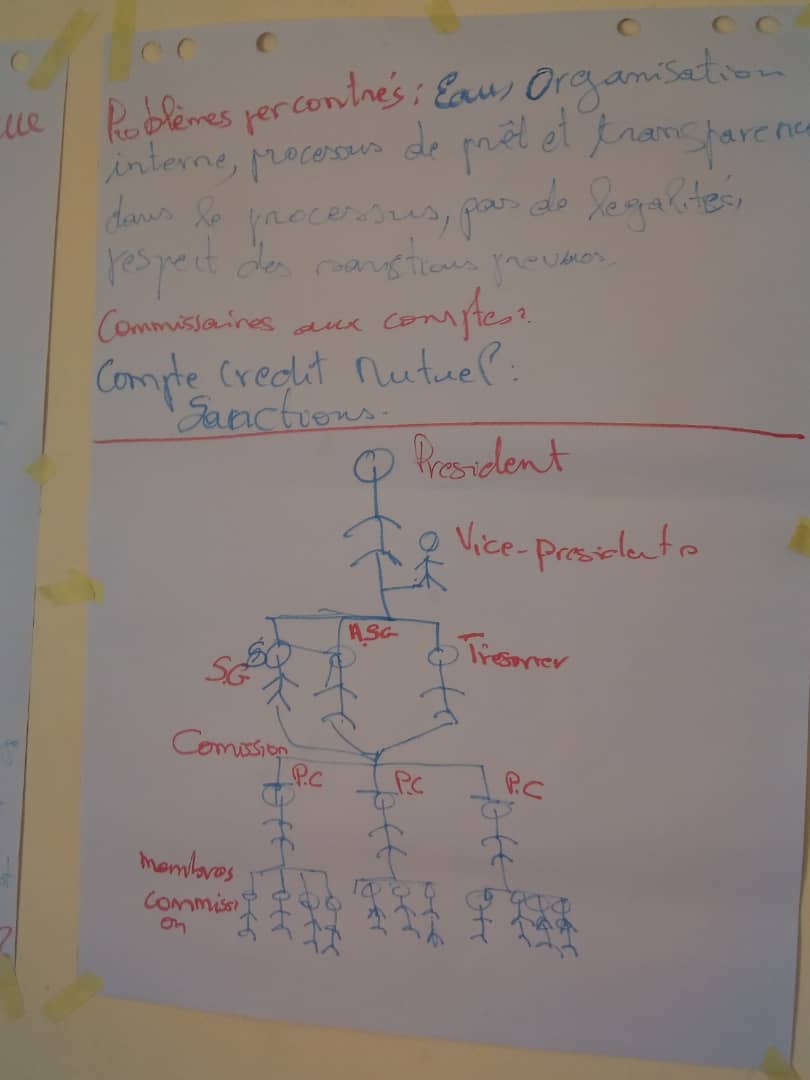 ue
Problèmes rencontrés: Eau, Organisation
interne, processus de prêt et transparenc
dans le processus, pas de legalités,
respect des sanctions prevues.
Commissaires aux comptes?
Compte Credit Mutuel:
Sanctions.
President
Vice-president
A.SG
S.G
Tresorier
Comission
P.C P.C P.C
Membres
commissi
on